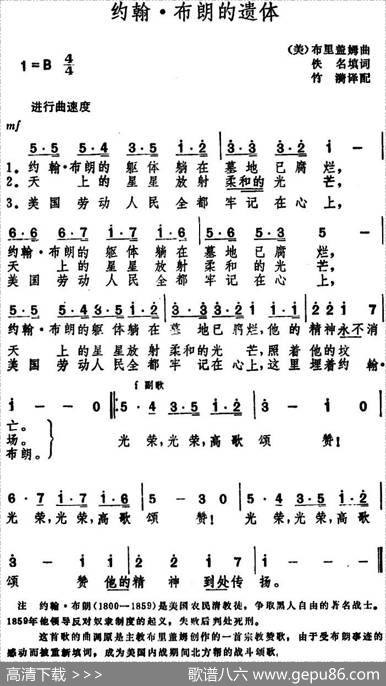 约翰·布朗的遗体
(美)布里盖姆曲
1=B 4/4
佚 名填词
竹 漪译配
进行曲速度
mf
5·5 5·4 3·5 i·2 3·3 3·2 i —
1。约翰·布朗的 躯体 躺在 墓地 已腐 烂，
2。天 上的 星星 放射 柔和的光 芒，
3。美国 劳动 人民 全都 牢记 在心 上，
6·6 6·7 i·7 i·6 5·5 6·5 5 —
约翰·布朗的 躯体 躺在 墓地 已腐 烂，
天 上的 星星 放射 柔和的光 芒，
美国 劳动 人民 全都 牢记 在心 上，
5·5 5·4 3·5 i·2 3·3 3·2 i·i i·i 2 2 i 7
约翰·布朗的躯体 躺在墓地已腐烂，他的 精神永不消
天 上的星星 放射柔和的光 芒，照着 他的坟
美国 劳动人民 全都牢记在心上，这里 埋着约翰·
f 副歌
i — i 0 5·4 3·5 i·2 3 — i 0
亡。
场。
布朗。
光荣，光荣，高歌 颂 赞！
6·7 i·7 i·6 5 — 3 0 5·5 3·5 i·2
光荣，光荣，高歌 颂 赞！ 光荣，光荣，高歌
3 — i i i 2 2 i 7 i — i 0
颂 赞 他的精 神 到处传 扬。
注 约翰·布朗(1800—1859)是美国农民清教徒，争取黑人自由的著名战士。
1859年他领导反对奴隶制度的起义，失败后判处死刑。
这首歌的曲调原是主教布里盖姆创作的一首宗教赞歌，由于受布朗事迹的
感动而被重新填词，成为美国内战期间北方帮的战斗颂歌。
高清下载 >>> 歌谱八六 www.gepu86.com